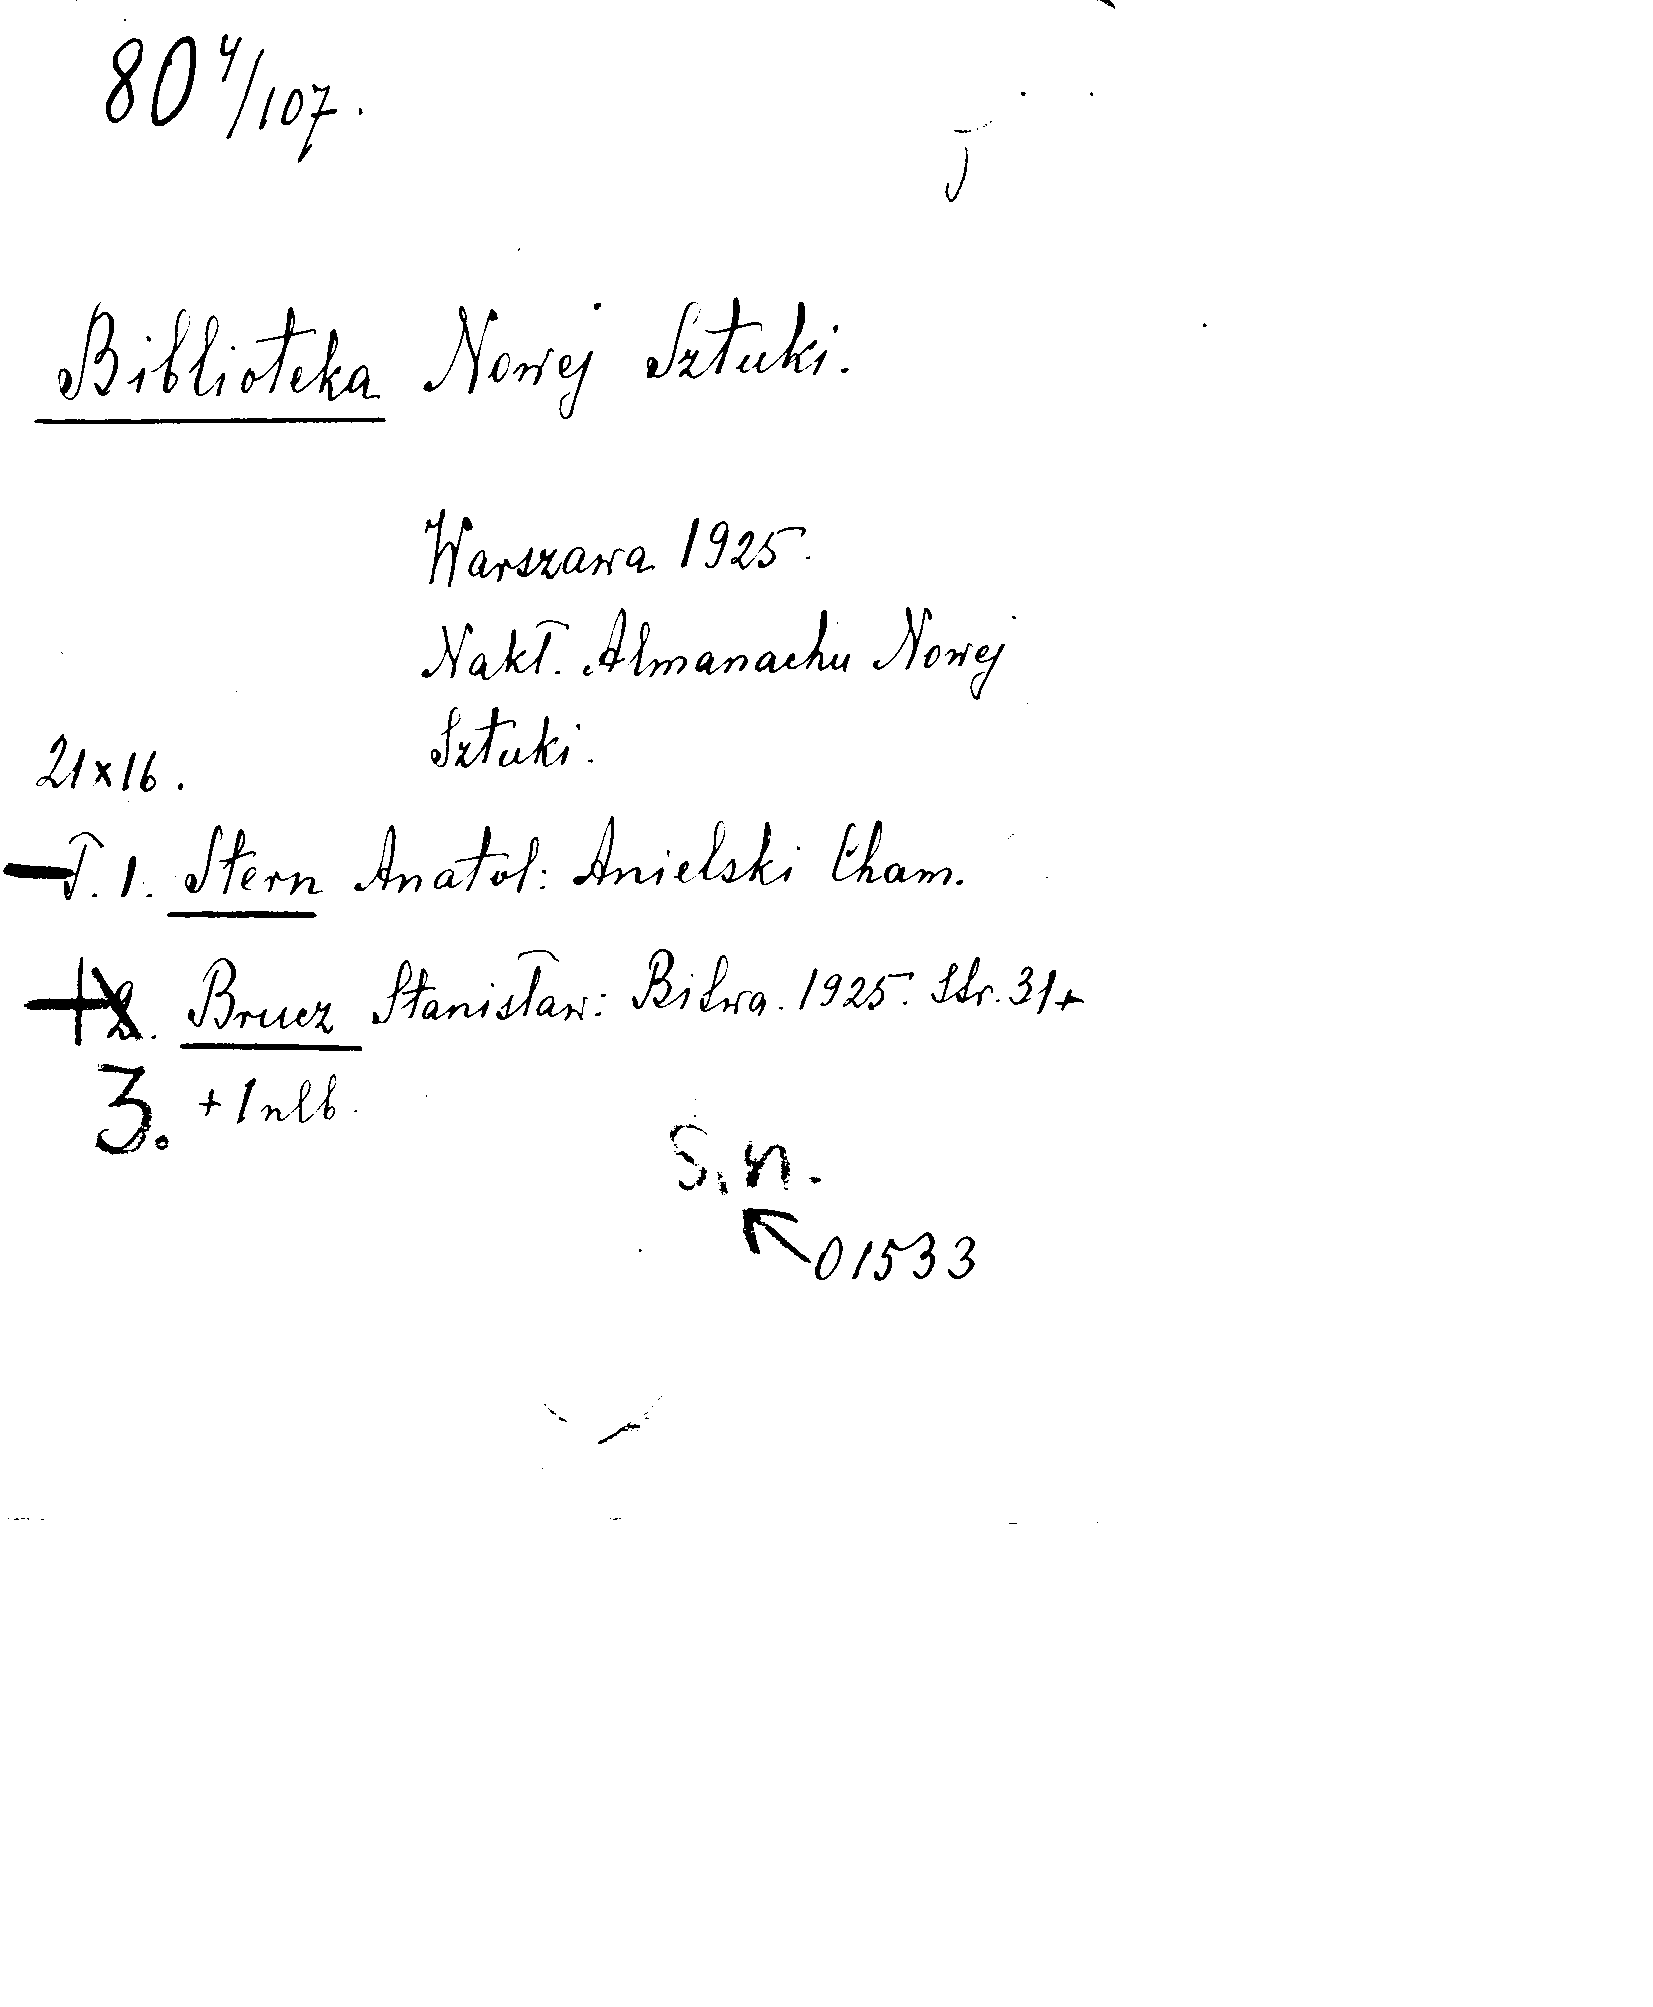 80 4/107.
Biblioteka Nowej Sztuki.
Warszawa 1925.
Nakł. Almanachu Nowej
Sztuki.
21x16.
T. 1. Stern Anatol: Anielski Cham.
2. Brucz Stanisław: Bitwa. 1925. Str. 31+
3. + 1 nlb.
S. n.
01533